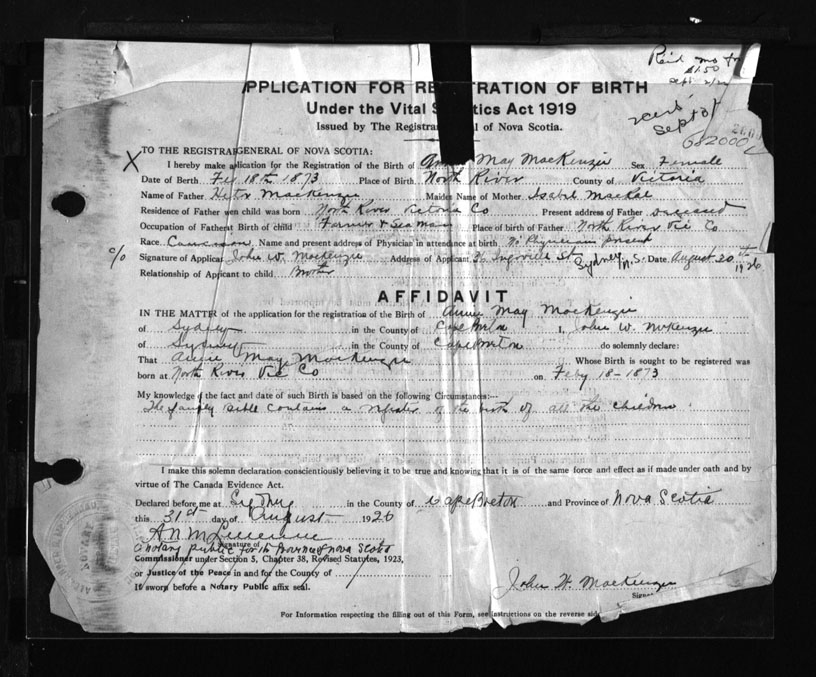 Paid
$1.50
PPLICATION FOR RE TRATION OF BIRTH
Under the Vital S tics Act 1919
Sept
Issued by The Registra al of Nova Scotia.
TO THE REGISTRAR GENERAL OF NOVA SCOTIA:
X I hereby make application for the Registration of the Birth of Annie May MacKenzie Sex Female
Date of Birth Feb 18th 1873 Place of Birth North River County of Victoria
Name of Father MacKenzie Maiden Name of Mother Isabel
Residence of Father when child was born North River Victoria Co Present address of Father Deceased
Occupation of Father at Birth of child Farmer & Seaman Place of birth of Father North River Vic Co
Race Name and present address of Physician in attendance at birth No Physician present
c/o Signature of Applicant John W. MacKenzie Address of Applicant St Sydney N.S. Date August 20th
1926
Relationship of Applicant to child Brother
AFFIDAVIT
IN THE MATTER of the application for the registration of the Birth of Annie May MacKenzie
of Sydney in the County of Cape Breton I, John W. McKenzie
of Sydney in the County of Cape Breton do solemnly declare:
That Annie May MacKenzie Whose Birth is sought to be registered was
born at North River Vic Co on Feby 18-1873
My knowledge of the fact and date of such Birth is based on the following Circumstances:—
The family Bible contains a register of the birth of all the children
I make this solemn declaration conscientiously believing it to be true and knowing that it is of the same force and effect as if made under oath and by
virtue of The Canada Evidence Act.
Declared before me at Sydney in the County of Cape Breton and Province of Nova Scotia
this 31st day of August 1926
Signature of
a notary public for the Province of Nova Scotia
Commissioner under Section 5, Chapter 38, Revised Statutes, 1923,
or Justice of the Peace in and for the County of
If sworn before a Notary Public affix seal.
John W. MacKenzie
Signa
For Information respecting the filling out of this Form, see instructions on the reverse side